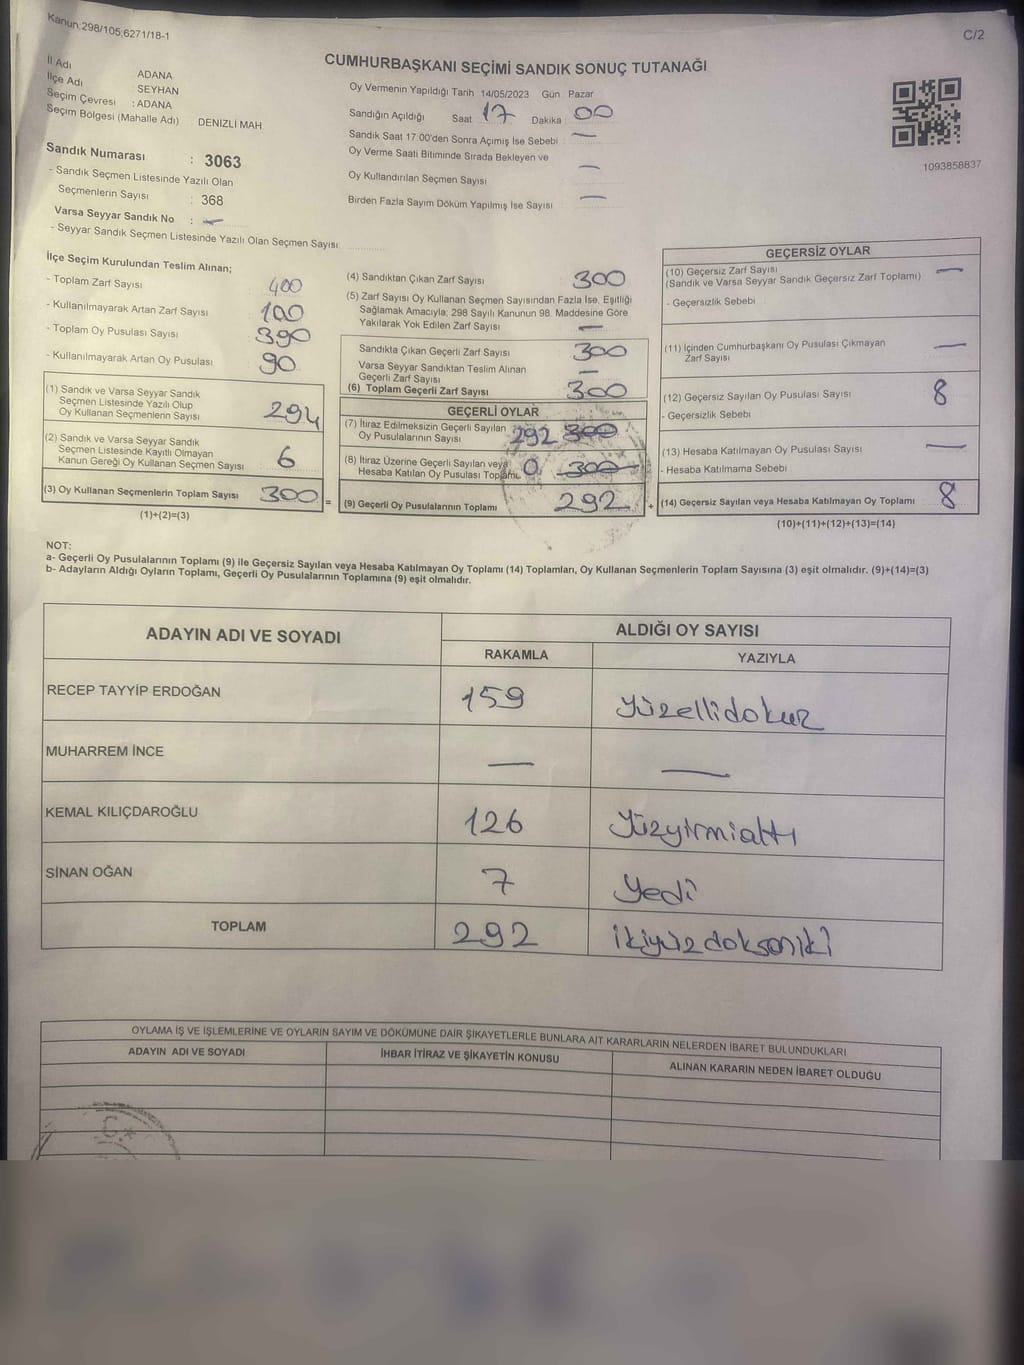 Kanun:298/105;6271/18-1
C/2
CUMHURBAŞKANI SEÇİMİ SANDIK SONUÇ TUTANAĞI
İl Adı ADANA
İlçe Adı SEYHAN
Seçim Çevresi : ADANA
Seçim Bölgesi (Mahalle Adı) DENIZLI MAH
Sandık Numarası : 3063
- Sandık Seçmen Listesinde Yazılı Olan
Seçmenlerin Sayısı : 368
Varsa Seyyar Sandık No : —
- Seyyar Sandık Seçmen Listesinde Yazılı Olan Seçmen Sayısı
Oy Vermenin Yapıldığı Tarih 14/05/2023 Gün Pazar
Sandığın Açıldığı Saat 17 Dakika 00
Sandık Saat 17:00'den Sonra Açımış İse Sebebi —
Oy Verme Saati Bitiminde Sırada Bekleyen ve
Oy Kullandırılan Seçmen Sayısı —
Birden Fazla Sayım Döküm Yapılmış İse Sayısı —
1093858837
İlçe Seçim Kurulundan Teslim Alınan;
- Toplam Zarf Sayısı 400
- Kullanılmayarak Artan Zarf Sayısı 100
- Toplam Oy Pusulası Sayısı 390
- Kullanılmayarak Artan Oy Pusulası 90
(1) Sandık ve Varsa Seyyar Sandık
Seçmen Listesinde Yazılı Olup
Oy Kullanan Seçmenlerin Sayısı 294
(2) Sandık ve Varsa Seyyar Sandık
Seçmen Listesinde Kayıtlı Olmayan
Kanun Gereği Oy Kullanan Seçmen Sayısı 6
(3) Oy Kullanan Seçmenlerin Toplam Sayısı 300 =
(1)+(2)=(3)
(4) Sandıktan Çıkan Zarf Sayısı 300
(5) Zarf Sayısı Oy Kullanan Seçmen Sayısından Fazla İse, Eşitliği
Sağlamak Amacıyla; 298 Sayılı Kanunun 98. Maddesine Göre
Yakılarak Yok Edilen Zarf Sayısı —
Sandıkta Çıkan Geçerli Zarf Sayısı 300
Varsa Seyyar Sandıktan Teslim Alınan
Geçerli Zarf Sayısı —
(6) Toplam Geçerli Zarf Sayısı 300
GEÇERLİ OYLAR
(7) İtiraz Edilmeksizin Geçerli Sayılan
Oy Pusulalarının Sayısı 292 300
(8) İtiraz Üzerine Geçerli Sayılan veya
Hesaba Katılan Oy Pusulası Toplamı 0 300
(9) Geçerli Oy Pusulalarının Toplamı 292 +
GEÇERSİZ OYLAR
(10) Geçersiz Zarf Sayısı —
(Sandık ve Varsa Seyyar Sandık Geçersiz Zarf Toplamı)
- Geçersizlik Sebebi
(11) İçinden Cumhurbaşkanı Oy Pusulası Çıkmayan
Zarf Sayısı —
(12) Geçersiz Sayılan Oy Pusulası Sayısı 8
- Geçersizlik Sebebi
(13) Hesaba Katılmayan Oy Pusulası Sayısı —
- Hesaba Katılmama Sebebi
(14) Geçersiz Sayılan veya Hesaba Katılmayan Oy Toplamı 8
(10)+(11)+(12)+(13)=(14)
NOT:
a- Geçerli Oy Pusulalarının Toplamı (9) ile Geçersiz Sayılan veya Hesaba Katılmayan Oy Toplamı (14) Toplamları, Oy Kullanan Seçmenlerin Toplam Sayısına (3) eşit olmalıdır. (9)+(14)=(3)
b- Adayların Aldığı Oyların Toplamı, Geçerli Oy Pusulalarının Toplamına (9) eşit olmalıdır.
ADAYIN ADI VE SOYADI ALDIĞI OY SAYISI
RAKAMLA YAZIYLA
RECEP TAYYİP ERDOĞAN 159 yüzellidokuz
MUHARREM İNCE — —
KEMAL KILIÇDAROĞLU 126 yüzyirmialtı
SİNAN OĞAN 7 yedi
TOPLAM 292 ikiyüzdoksaniki
OYLAMA İŞ VE İŞLEMLERİNE VE OYLARIN SAYIM VE DÖKÜMÜNE DAİR ŞİKAYETLERLE BUNLARA AİT KARARLARIN NELERDEN İBARET BULUNDUKLARI
ADAYIN ADI VE SOYADI İHBAR İTİRAZ VE ŞİKAYETİN KONUSU ALINAN KARARIN NEDEN İBARET OLDUĞU